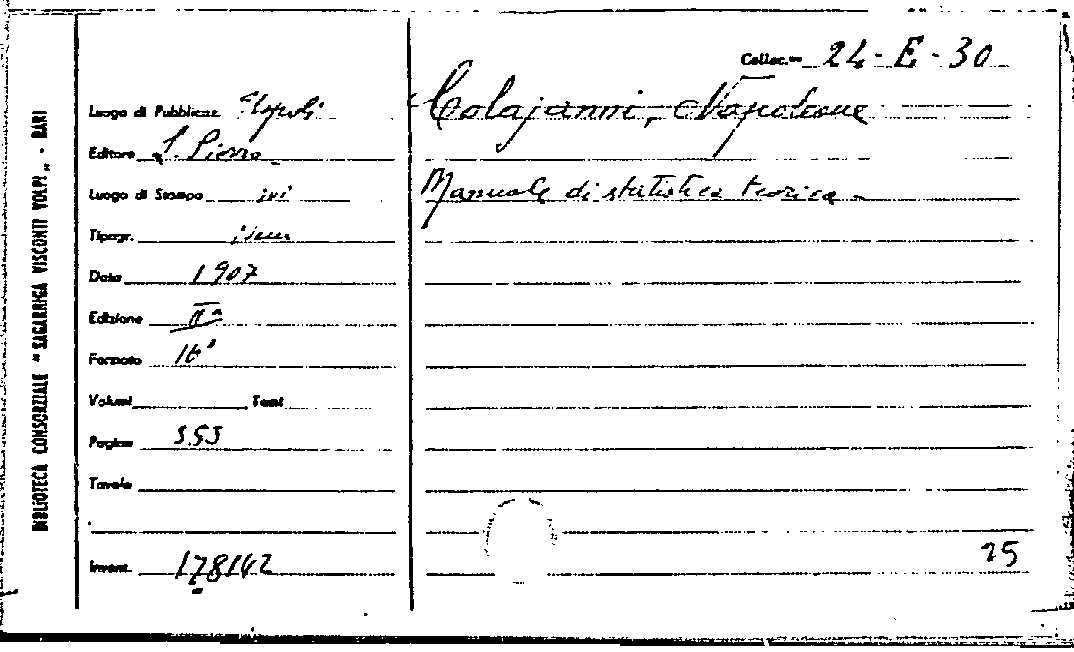 BIBLIOTECA CONSORZIALE "SAGARRIGA VISCONTI VOLPI„ - BARI
Colloc.ne 24 - E - 30
Colajanni, Napoleone
Manuale di statistica teorica -
Luogo di Pubblicaz. Napoli
Editore L. Pierro
Luogo di Stampa ivi
Tipogr. idem
Data 1907
Edizione IIa
Formato 16°
Volumi Tomi
Pagine 553
Tavole
Invent. 178142
25